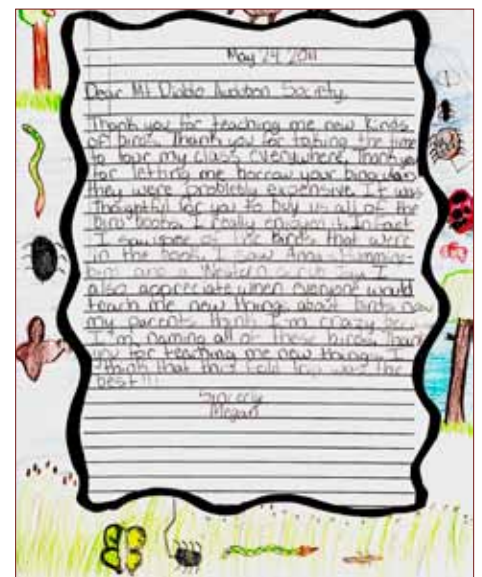 May 24, 2011
Dear Mt Diablo Audubon Society,
Thank you for teaching me new kinds
of birds. Thank you for taking the time
to tour my class everywhere. Thank you
for letting me borrow your
they were probbly expensive. It was
thoughtful for you to buy us all of the
bird books. I really enjoyed it. In fact
I saw of the birds that were
in the book. I saw Anna's Humming-
bird and a Western Scrub Jay. I
also appreciate when everyone would
teach me new things about birds now
my parents think I'm crazy
I'm naming all of these birds. Thank
you for teaching me new things. I
think that this feild trip was the
best!!!
Sincerly
Megan